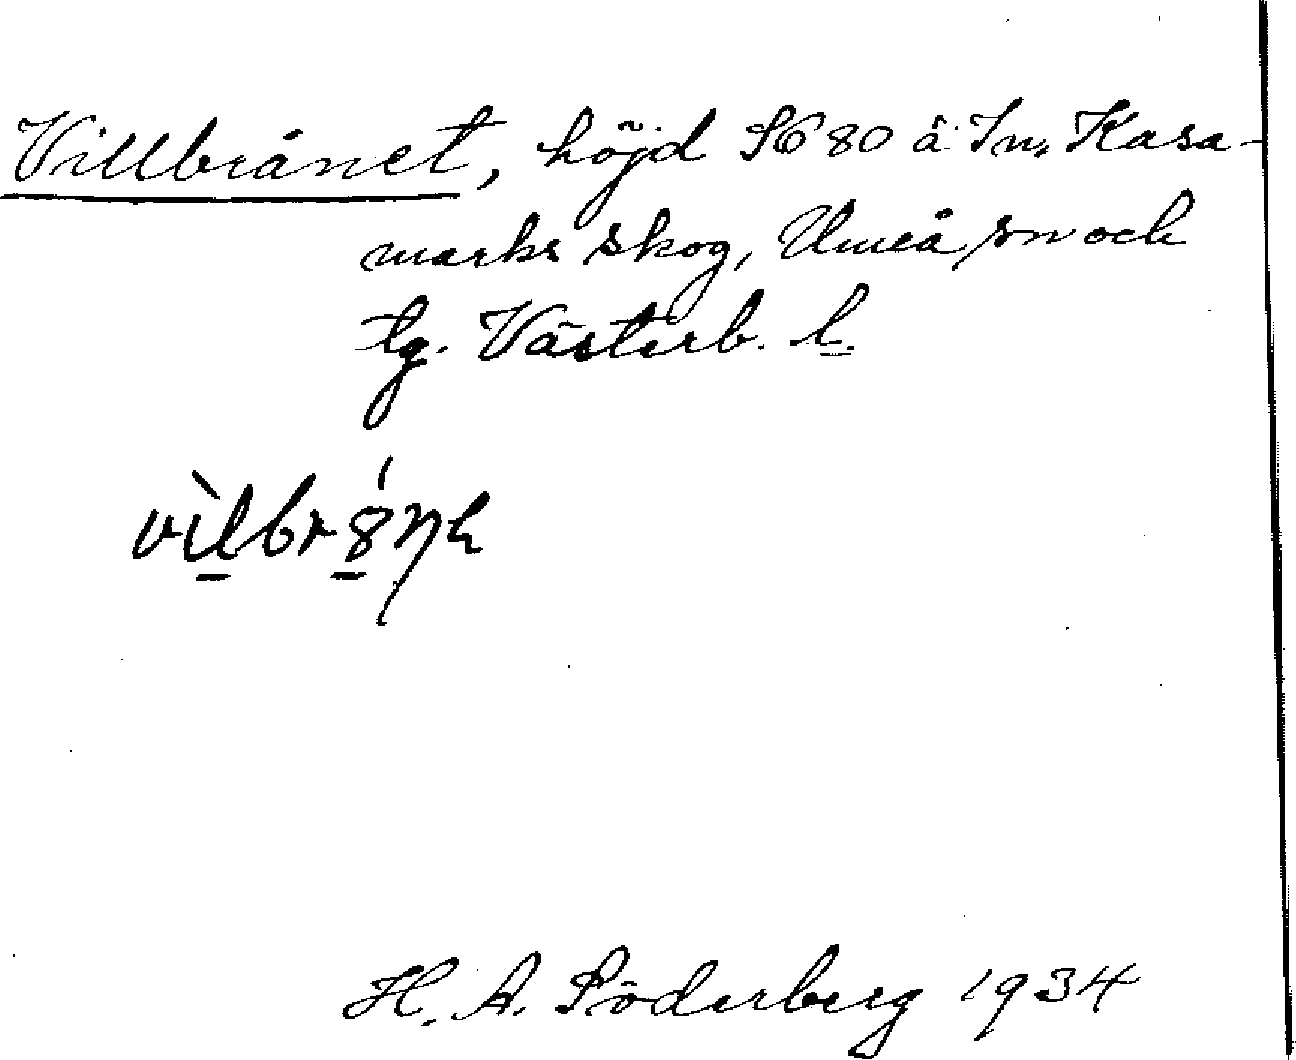 Villbrånet, höjd S6 80 å In. Kasa-
marks skog, Umeå sn och
tg. Västerb. l.
H. A. Söderberg 1934